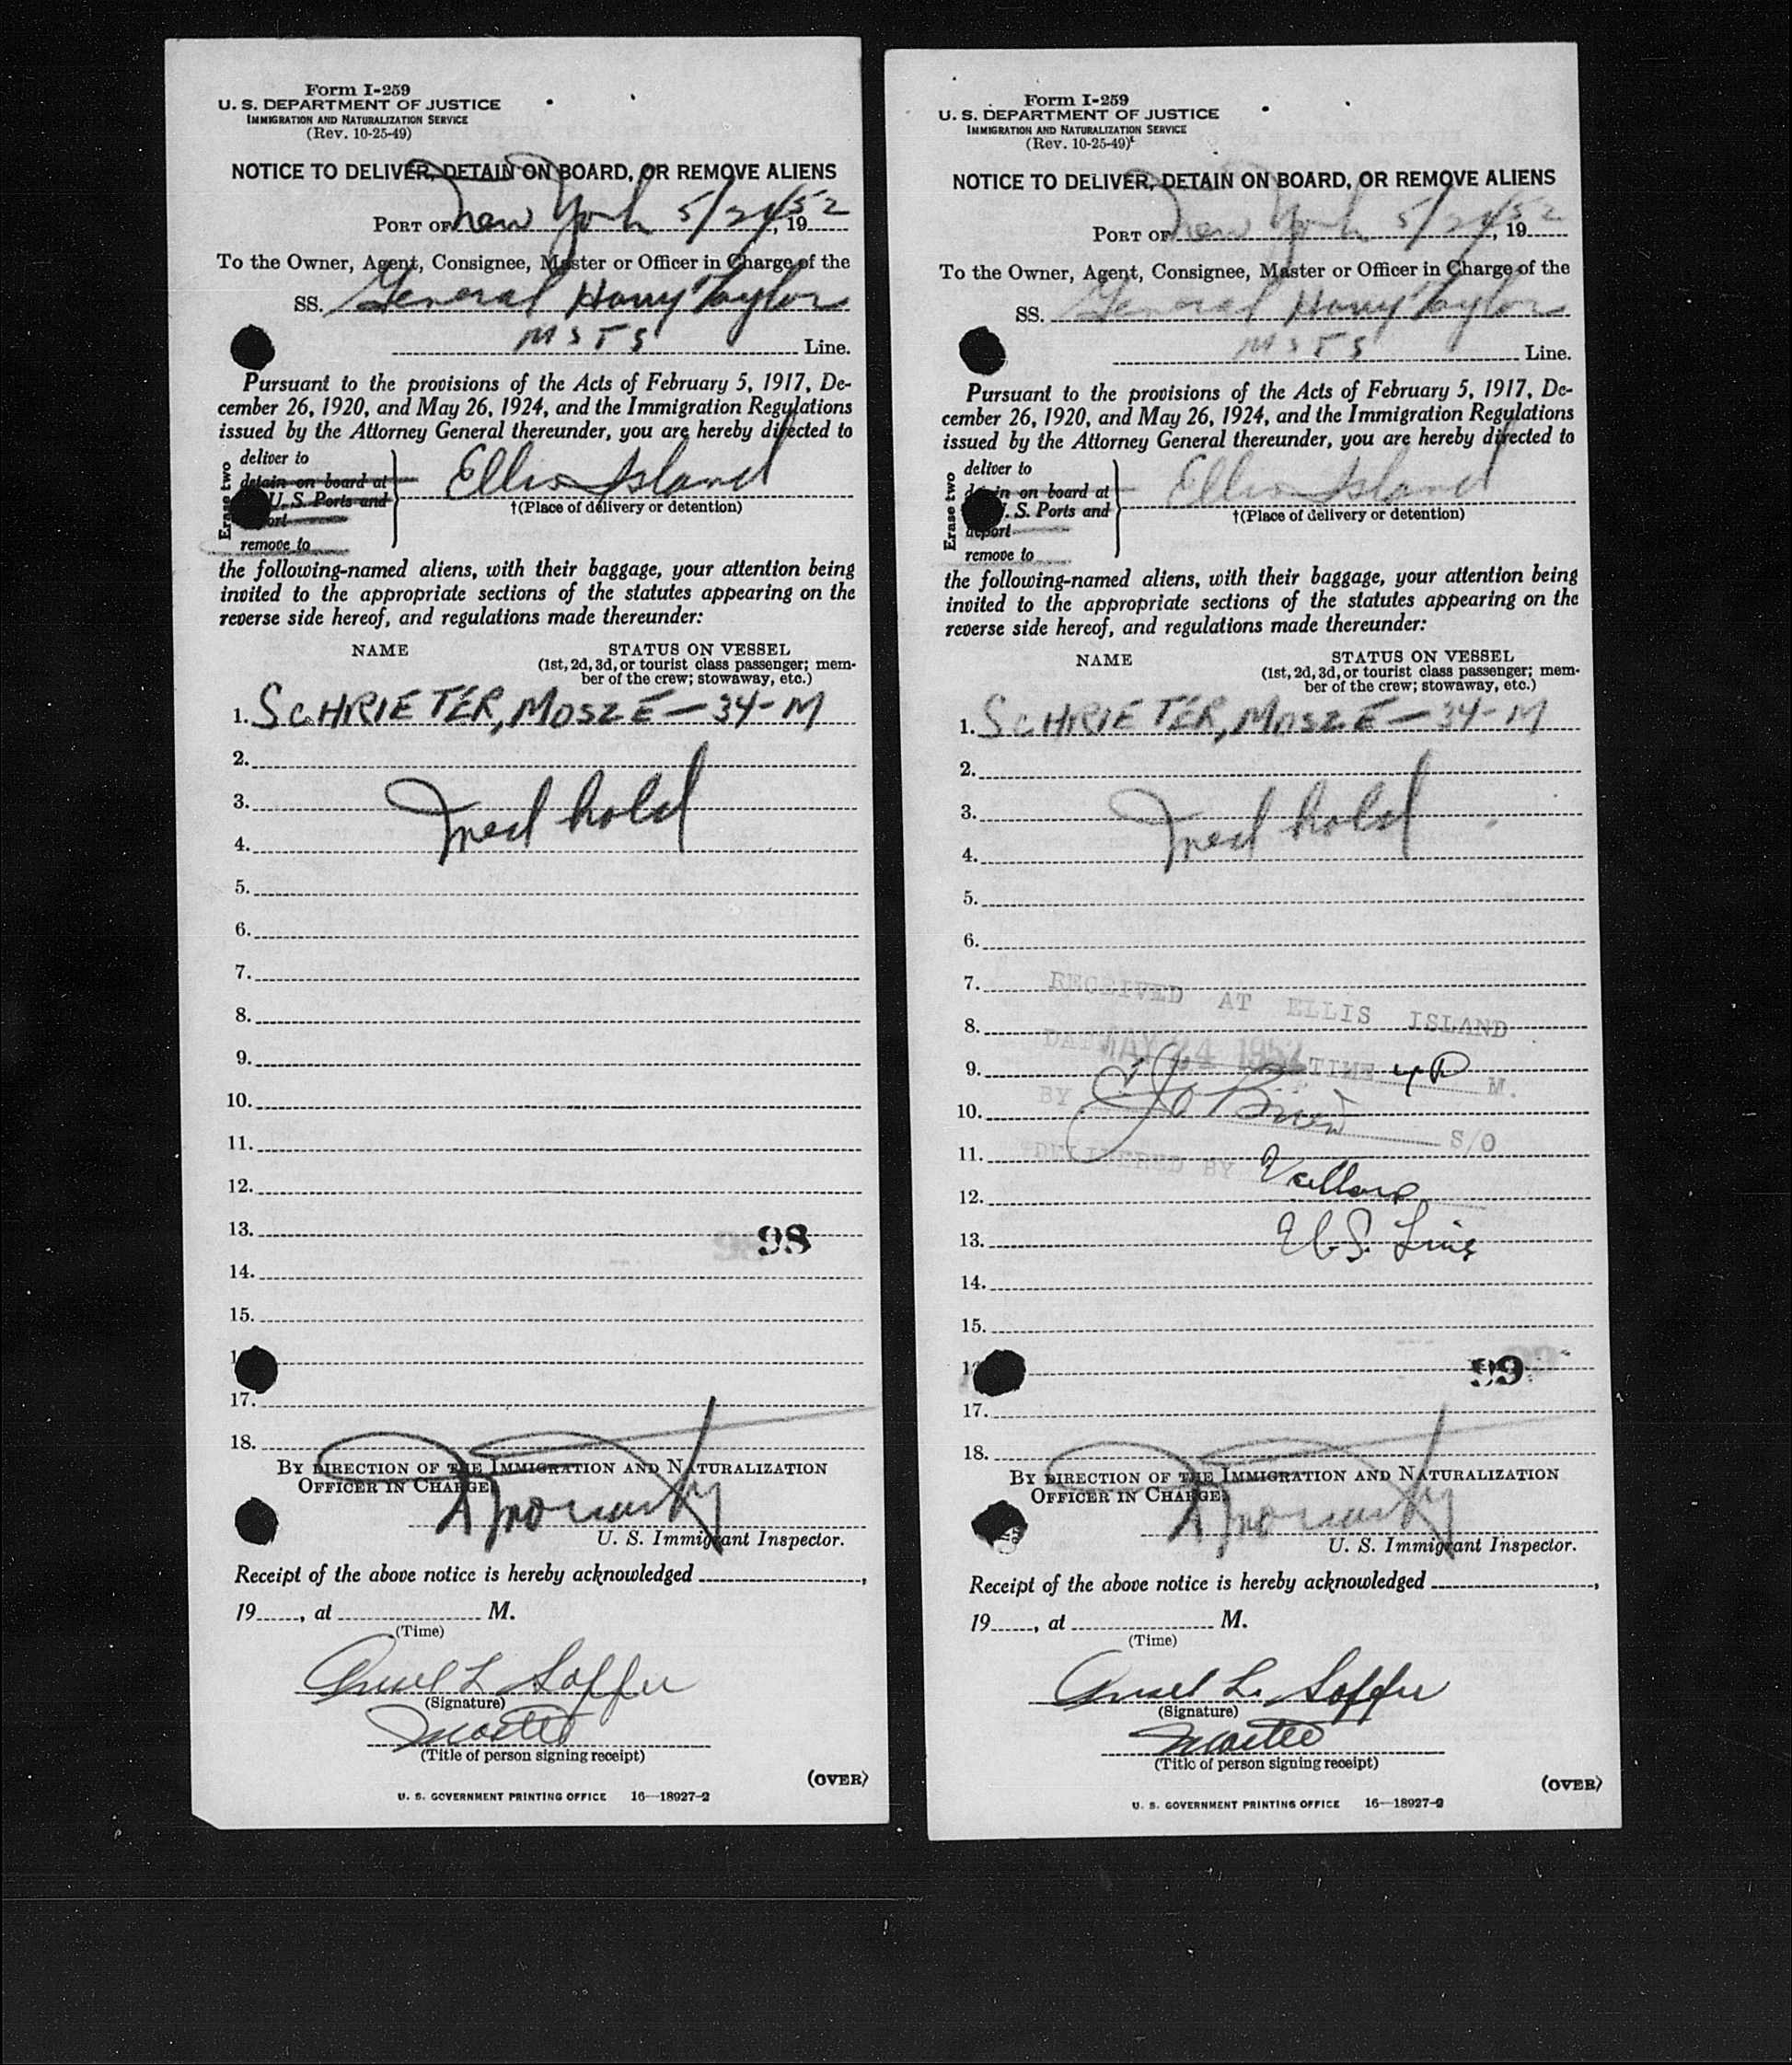 Form I-259
U. S. DEPARTMENT OF JUSTICE
IMMIGRATION AND NATURALIZATION SERVICE
(Rev. 10-25-49)
NOTICE TO DELIVER, DETAIN ON BOARD, OR REMOVE ALIENS
PORT OF New York 5/24, 1952
To the Owner, Agent, Consignee, Master or Officer in Charge of the
SS. General Harry Taylor
MSTS Line.
Pursuant to the provisions of the Acts of February 5, 1917, De-
cember 26, 1920, and May 26, 1924, and the Immigration Regulations
issued by the Attorney General thereunder, you are hereby directed to
Erase two
deliver to
detain on board at
U. S. Ports and
remove to
Ellis Island
†(Place of delivery or detention)
the following-named aliens, with their baggage, your attention being
invited to the appropriate sections of the statutes appearing on the
reverse side hereof, and regulations made thereunder:
NAME STATUS ON VESSEL
(1st, 2d, 3d, or tourist class passenger; mem-
ber of the crew; stowaway, etc.)
1. SCHRIETER, MOSZE - 34 - M
2.
3. Med hold
4.
5.
6.
7.
8.
9.
10.
11.
12.
13. 98
14.
15.
17.
18.
BY DIRECTION OF THE IMMIGRATION AND NATURALIZATION
OFFICER IN CHARGE,
U. S. Immigrant Inspector.
Receipt of the above notice is hereby acknowledged ,
19 , at M.
(Time)
L Soffer
(Signature)
Master
(Title of person signing receipt)
(OVER)
U. S. GOVERNMENT PRINTING OFFICE 16—18927-2
Form I-259
U. S. DEPARTMENT OF JUSTICE
IMMIGRATION AND NATURALIZATION SERVICE
(Rev. 10-25-49)
NOTICE TO DELIVER, DETAIN ON BOARD, OR REMOVE ALIENS
PORT OF New York 5/24, 1952
To the Owner, Agent, Consignee, Master or Officer in Charge of the
SS. General Harry Taylor
MSTS Line.
Pursuant to the provisions of the Acts of February 5, 1917, De-
cember 26, 1920, and May 26, 1924, and the Immigration Regulations
issued by the Attorney General thereunder, you are hereby directed to
Erase two
deliver to
on board at
S. Ports and
deport
remove to
Ellis Island
†(Place of delivery or detention)
the following-named aliens, with their baggage, your attention being
invited to the appropriate sections of the statutes appearing on the
reverse side hereof, and regulations made thereunder:
NAME STATUS ON VESSEL
(1st, 2d, 3d, or tourist class passenger; mem-
ber of the crew; stowaway, etc.)
1. SCHRIETER, MOSZE - 34 - M
2.
3. Med hold
4.
5.
6.
7.
RECEIVED AT ELLIS ISLAND
8.
DATE MAY 24 1952 TIME 4 P M.
9.
BY O'Brien S/O
10.
11.
DELIVERED BY
12.
13. U.S. Line
14.
15.
99
17.
18.
BY DIRECTION OF THE IMMIGRATION AND NATURALIZATION
OFFICER IN CHARGE,
U. S. Immigrant Inspector.
Receipt of the above notice is hereby acknowledged ,
19 , at M.
(Time)
L. Soffer
(Signature)
Master
(Title of person signing receipt)
(OVER)
U. S. GOVERNMENT PRINTING OFFICE 16—18927-2